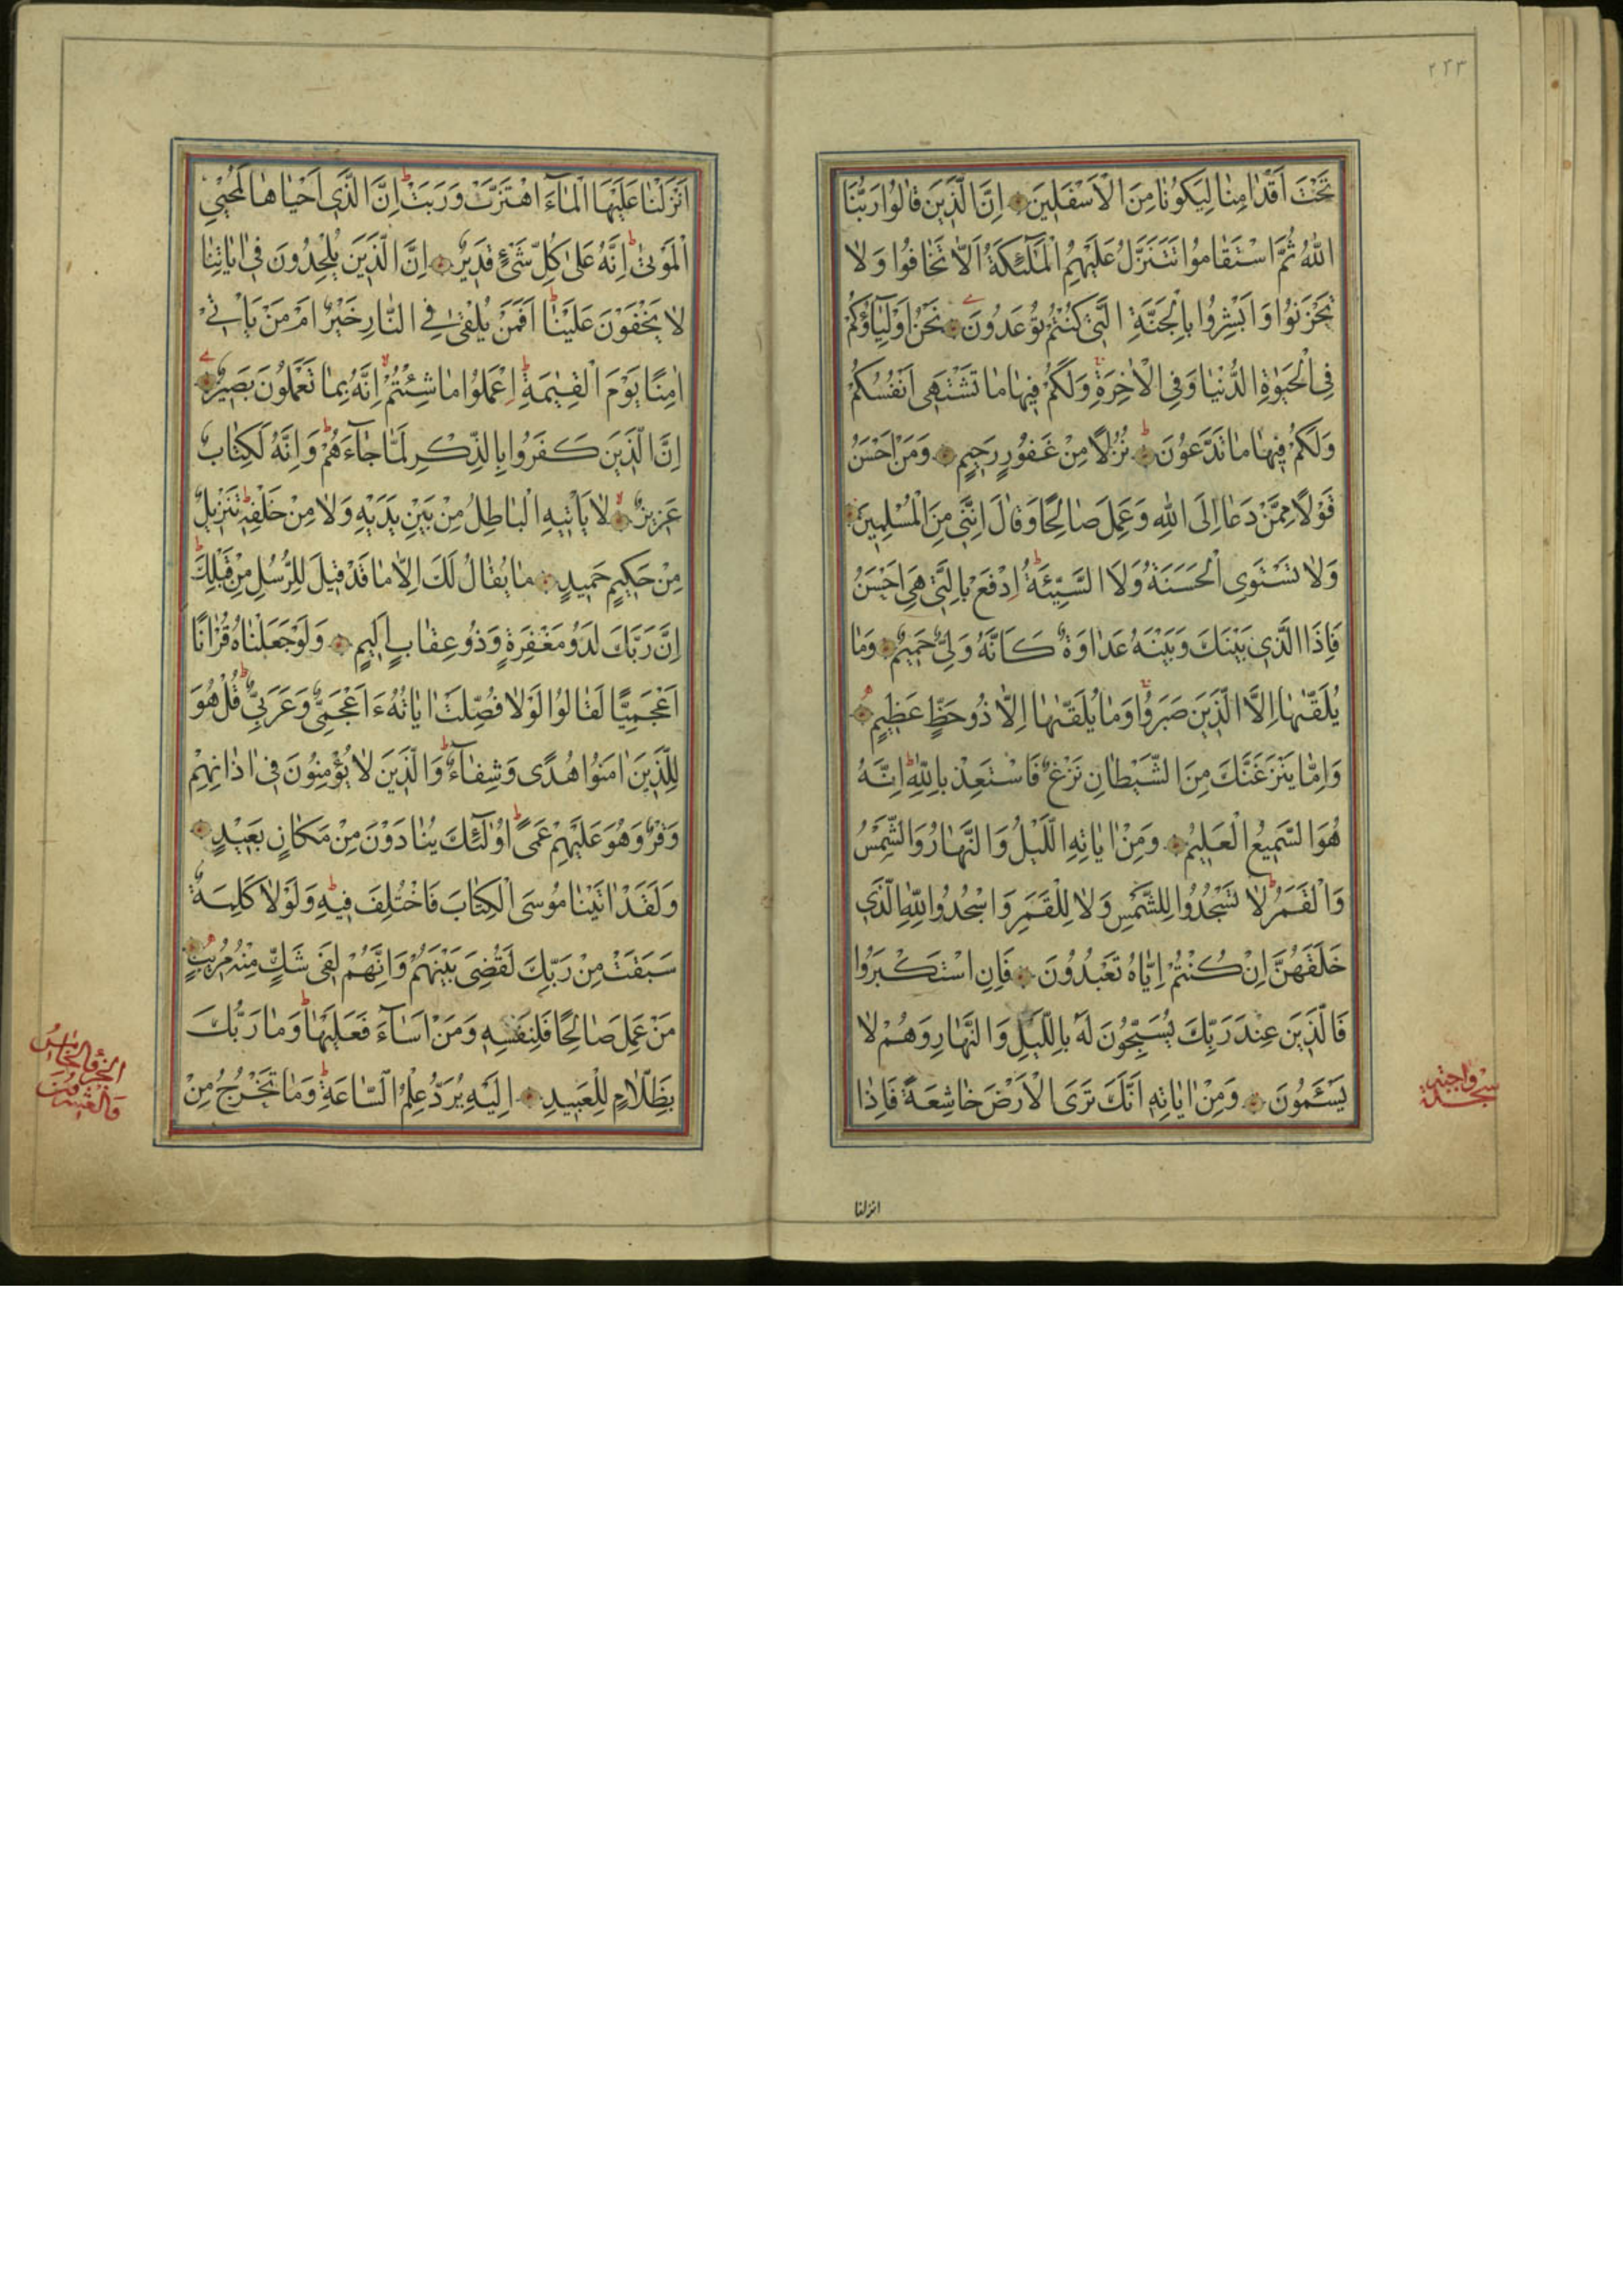 ٢٢٣
تَحْتَ اَقْدٰامِنٰا لِيَكُونٰا مِنَ الْاَسْفَلِينَ اِنَّ الَّذِينَ قٰالُوا رَبُّنَا
اللّٰهُ ثُمَّ اسْتَقٰامُوا تَتَنَزَّلُ عَلَيْهِمُ الْمَلٰٓئِكَةُ اَلّٰا تَخٰافُوا وَلٰا
تَحْزَنُوا وَاَبْشِرُوا بِالْجَنَّةِ الَّتِي كُنْتُمْ تُوعَدُونَ نَحْنُ اَوْلِيٰٓاؤُكُمْ
فِي الْحَيٰوةِ الدُّنْيٰا وَفِي الْاٰخِرَةِ وَلَكُمْ فِيهٰا مٰا تَشْتَهِي اَنْفُسُكُمْ
وَلَكُمْ فِيهٰا مٰا تَدَّعُونَ نُزُلًا مِنْ غَفُورٍ رَحِيمٍ وَمَنْ اَحْسَنُ
قَوْلًا مِمَّنْ دَعٰا اِلَى اللّٰهِ وَعَمِلَ صٰالِحًا وَقٰالَ اِنَّنِي مِنَ الْمُسْلِمِينَ
وَلٰا تَسْتَوِي الْحَسَنَةُ وَلَا السَّيِّئَةُ اِدْفَعْ بِالَّتِي هِيَ اَحْسَنُ
فَاِذَا الَّذِي بَيْنَكَ وَبَيْنَهُ عَدٰاوَةٌ كَاَنَّهُ وَلِيٌّ حَمِيمٌ وَمٰا
يُلَقّٰيهٰا اِلَّا الَّذِينَ صَبَرُوا وَمٰا يُلَقّٰيهٰا اِلّٰا ذُو حَظٍّ عَظِيمٍ
وَاِمّٰا يَنْزَغَنَّكَ مِنَ الشَّيْطٰانِ نَزْغٌ فَاسْتَعِذْ بِاللّٰهِ اِنَّهُ
هُوَ السَّمِيعُ الْعَلِيمُ وَمِنْ اٰيٰاتِهِ اللَّيْلُ وَالنَّهٰارُ وَالشَّمْسُ
وَالْقَمَرُ لٰا تَسْجُدُوا لِلشَّمْسِ وَلٰا لِلْقَمَرِ وَاسْجُدُوا لِلّٰهِ الَّذِي
خَلَقَهُنَّ اِنْ كُنْتُمْ اِيّٰاهُ تَعْبُدُونَ فَاِنِ اسْتَكْبَرُوا
فَالَّذِينَ عِنْدَ رَبِّكَ يُسَبِّحُونَ لَهُ بِاللَّيْلِ وَالنَّهٰارِ وَهُمْ لٰا
يَسْئَمُونَ وَمِنْ اٰيٰاتِهِ اَنَّكَ تَرَى الْاَرْضَ خٰاشِعَةً فَاِذٰا
سجده واجبة
انزلنا
اَنْزَلْنٰا عَلَيْهَا الْمٰٓاءَ اهْتَزَّتْ وَرَبَتْ اِنَّ الَّذِي اَحْيٰاهٰا لَمُحْيِي
الْمَوْتٰى اِنَّهُ عَلٰى كُلِّ شَيْءٍ قَدِيرٌ اِنَّ الَّذِينَ يُلْحِدُونَ فِي اٰيٰاتِنٰا
لٰا يَخْفَوْنَ عَلَيْنٰا اَفَمَنْ يُلْقٰى فِي النّٰارِ خَيْرٌ اَمْ مَنْ يَاْتِي
اٰمِنًا يَوْمَ الْقِيٰمَةِ اِعْمَلُوا مٰا شِئْتُمْ اِنَّهُ بِمٰا تَعْمَلُونَ بَصِيرٌ
اِنَّ الَّذِينَ كَفَرُوا بِالذِّكْرِ لَمّٰا جٰٓاءَهُمْ وَاِنَّهُ لَكِتٰابٌ
عَزِيزٌ لٰا يَاْتِيهِ الْبٰاطِلُ مِنْ بَيْنِ يَدَيْهِ وَلٰا مِنْ خَلْفِهِ تَنْزِيلٌ
مِنْ حَكِيمٍ حَمِيدٍ مٰا يُقٰالُ لَكَ اِلّٰا مٰا قَدْ قِيلَ لِلرُّسُلِ مِنْ قَبْلِكَ
اِنَّ رَبَّكَ لَذُو مَغْفِرَةٍ وَذُو عِقٰابٍ اَلِيمٍ وَلَوْ جَعَلْنٰاهُ قُرْاٰنًا
اَعْجَمِيًّا لَقٰالُوا لَوْلٰا فُصِّلَتْ اٰيٰاتُهُ ءَاَعْجَمِيٌّ وَعَرَبِيٌّ قُلْ هُوَ
لِلَّذِينَ اٰمَنُوا هُدًى وَشِفٰٓاءٌ وَالَّذِينَ لٰا يُؤْمِنُونَ فِي اٰذٰانِهِمْ
وَقْرٌ وَهُوَ عَلَيْهِمْ عَمًى اُولٰٓئِكَ يُنٰادَوْنَ مِنْ مَكٰانٍ بَعِيدٍ
وَلَقَدْ اٰتَيْنٰا مُوسَى الْكِتٰابَ فَاخْتُلِفَ فِيهِ وَلَوْلٰا كَلِمَةٌ
سَبَقَتْ مِنْ رَبِّكَ لَقُضِيَ بَيْنَهُمْ وَاِنَّهُمْ لَفِي شَكٍّ مِنْهُ مُرِيبٍ
مَنْ عَمِلَ صٰالِحًا فَلِنَفْسِهِ وَمَنْ اَسٰٓاءَ فَعَلَيْهٰا وَمٰا رَبُّكَ
بِظَلّٰامٍ لِلْعَبِيدِ اِلَيْهِ يُرَدُّ عِلْمُ السّٰاعَةِ وَمٰا تَخْرُجُ مِنْ
الجزؤ الخامس
والعشرون